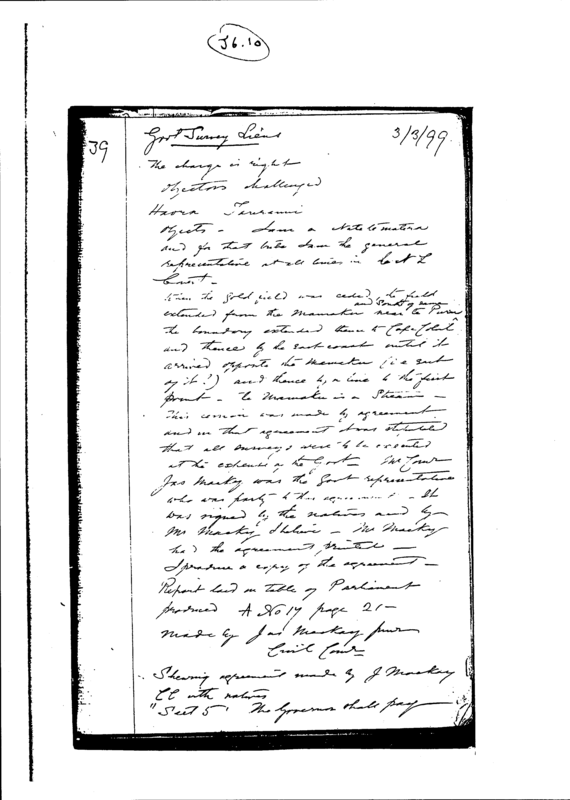 J6.10
39
Govt Survey Liens 3/3/99
The charge is right
Objectors challenged
Haora Tareranui
Objects - I am a Ngatitematera
and for that tribe I am the general
representative at all times in the N L
Court -
When the Gold field was ceded, the field
extended from the Mamaku near to Puru and South of same
the boundary extended thence to Cape Colville
and thence by the East coast until it
arrived opposite the Mamaku (i e east
of it!) and thence by a line to the first
point - The Mamaku is a Stream -
This cession was made by agreement
and in that agreement it was stipulated
that all surveys were to be executed
at the expense of the Govt - Civil Comr
Jas Mackay was the Govt representative
who was party to this agreement - It
was signed by the natives and by
Mr Mackay I believe - Mr Mackay
had the agreement printed -
I produce a copy of the agreement -
Report laid on table of Parliament
produced A No 17 page 21 -
made by Jas Mackay junr
Civil Comr
Shewing agreement made by J Mackay
CC with natives
"Sect 5" The Governor shall pay